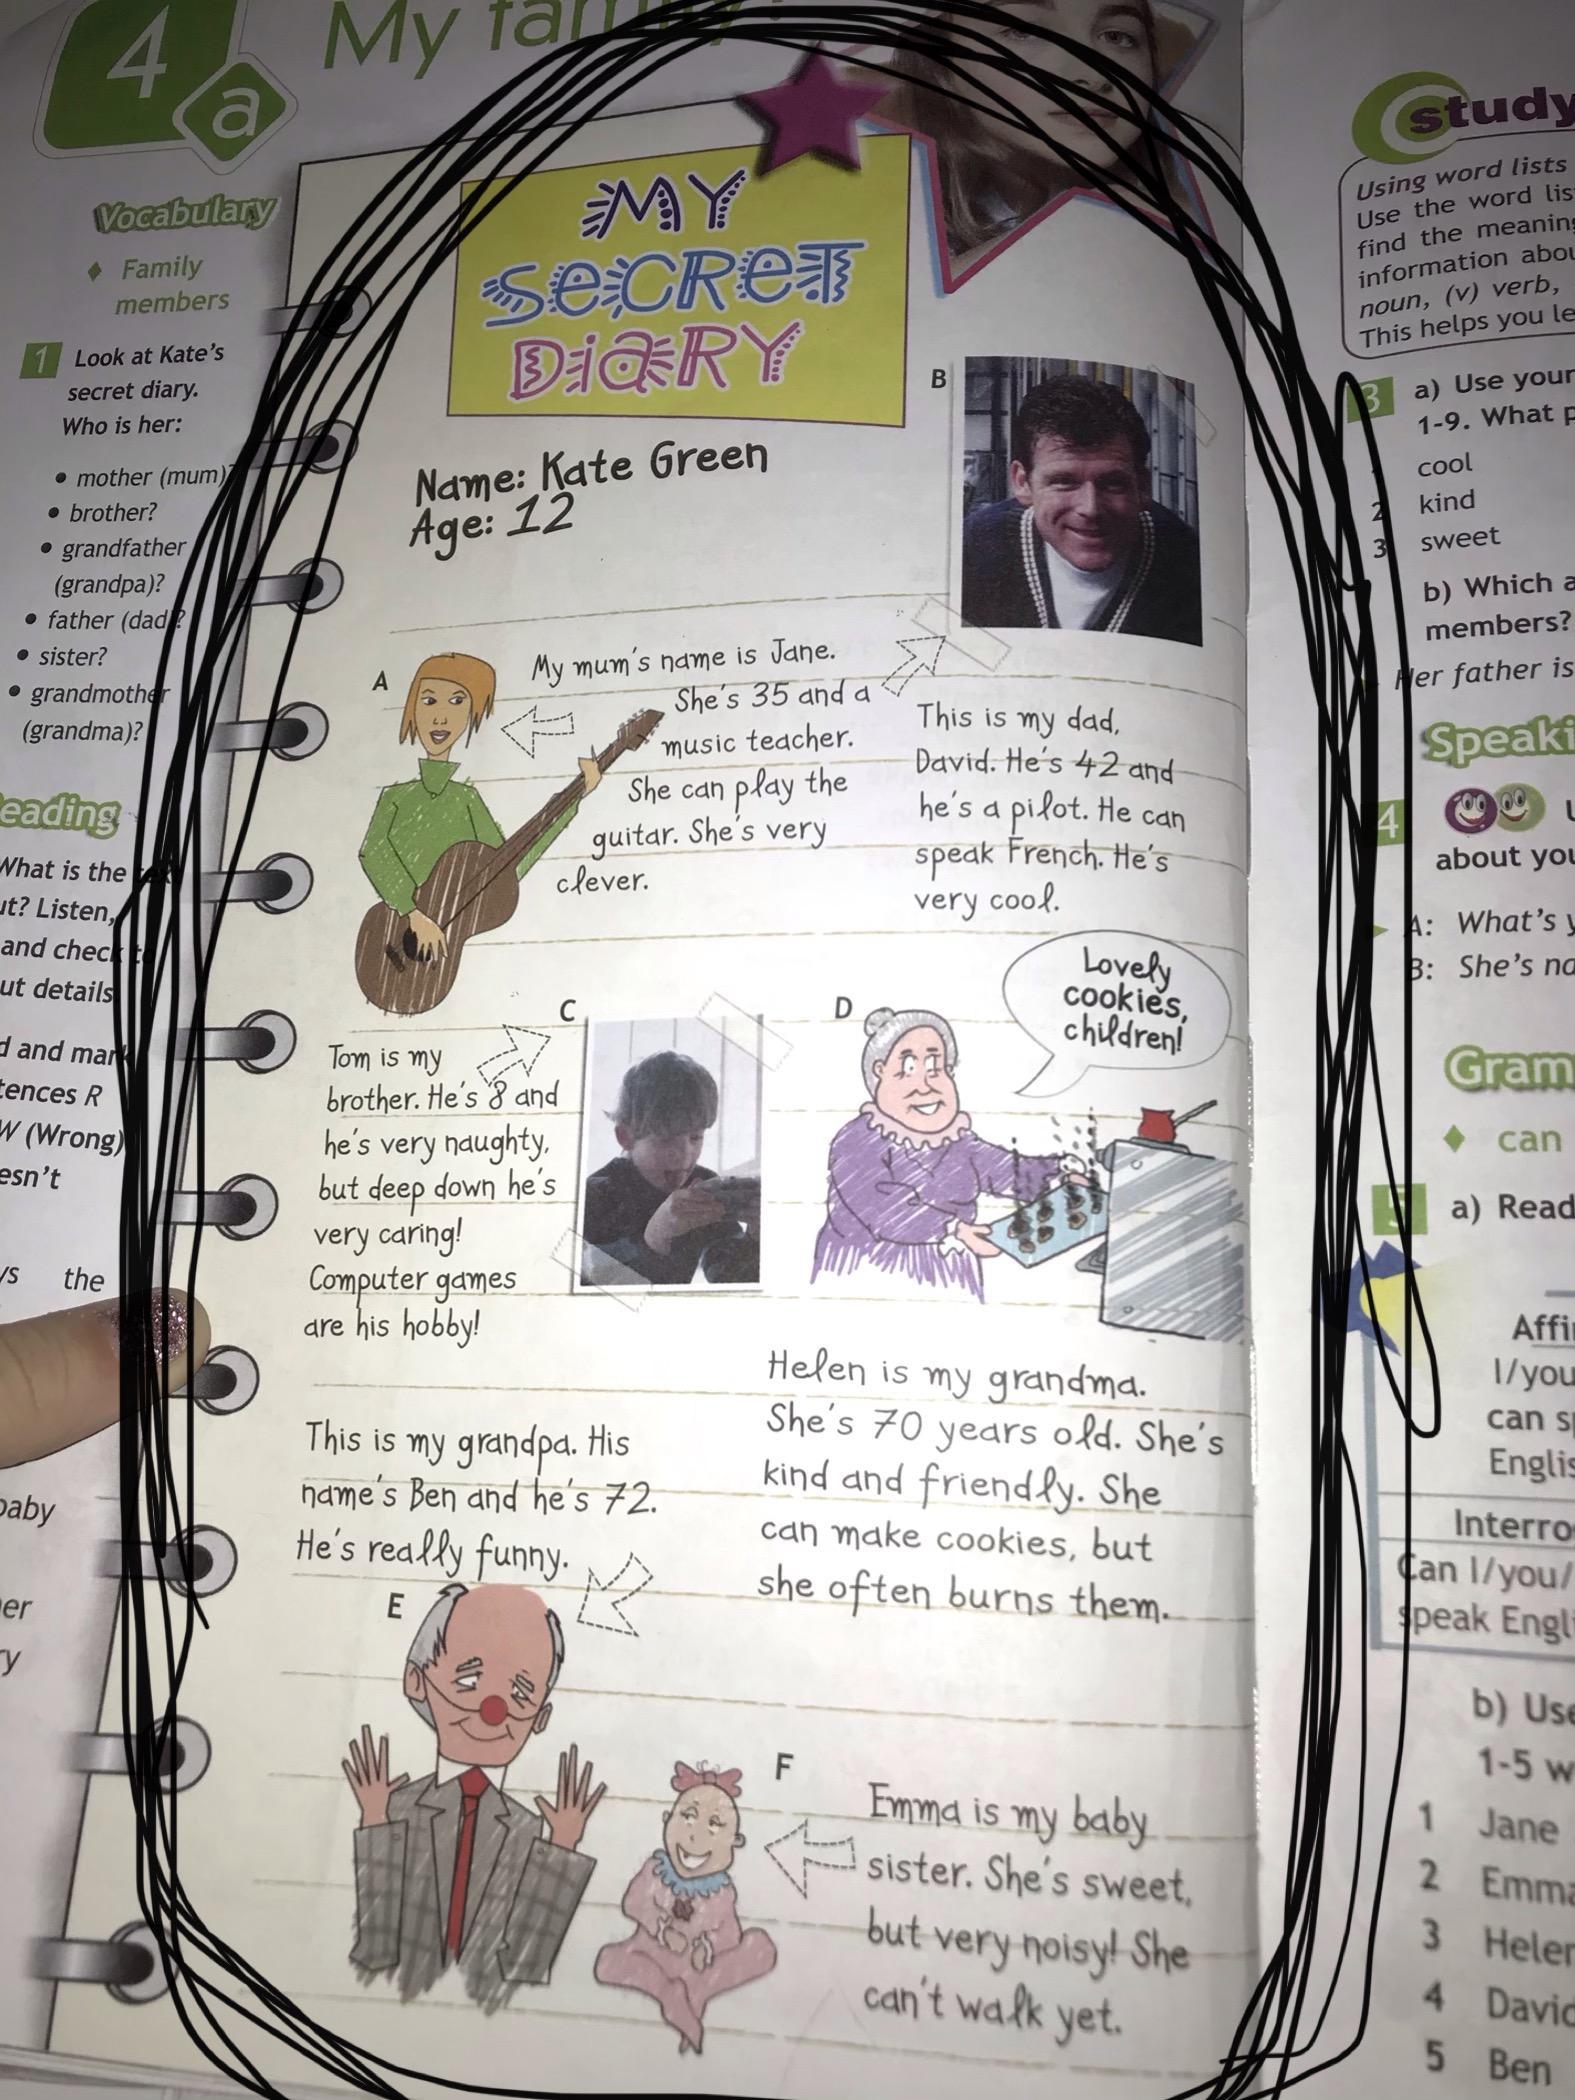 4
a
My family!
Vocabulary
Family
members
1 Look at Kate's
secret diary.
Who is her:
• mother (mum)?
• brother?
• grandfather
(grandpa)?
• father (dad)?
• sister?
• grandmother
(grandma)?
eading
What is the
ut? Listen,
and check to
ut details
d and mark
tences R
W (Wrong)
esn't
ys the
baby
er
y
MY
SECRET
DIARY
Name: Kate Green
Age: 12
A
My mum's name is Jane.
She's 35 and a
music teacher.
She can play the
guitar. She's very
clever.
B
This is my dad,
David. He's 42 and
he's a pilot. He can
speak French. He's
very cool.
C
Tom is my
brother. He's 8 and
he's very naughty,
but deep down he's
very caring!
Computer games
are his hobby!
D
Lovely
cookies,
children!
Helen is my grandma.
She's 70 years old. She's
kind and friendly. She
can make cookies, but
she often burns them.
This is my grandpa. His
name's Ben and he's 72.
He's really funny.
E
F
Emma is my baby
sister. She's sweet,
but very noisy! She
can't walk yet.
study
Using word lists
Use the word lis
find the meaning
information abou
noun, (v) verb,
This helps you le
3 a) Use your
1-9. What p
cool
2 kind
3 sweet
b) Which a
members?
Her father is
Speaki
4 U
about you
A: What's y
B: She's no
Gram
can
5 a) Read
Affi
I/you
can sp
Englis
Interro
Can I/you/
speak Engl
b) Use
1-5 w
1 Jane
2 Emma
3 Helen
4 David
5 Ben